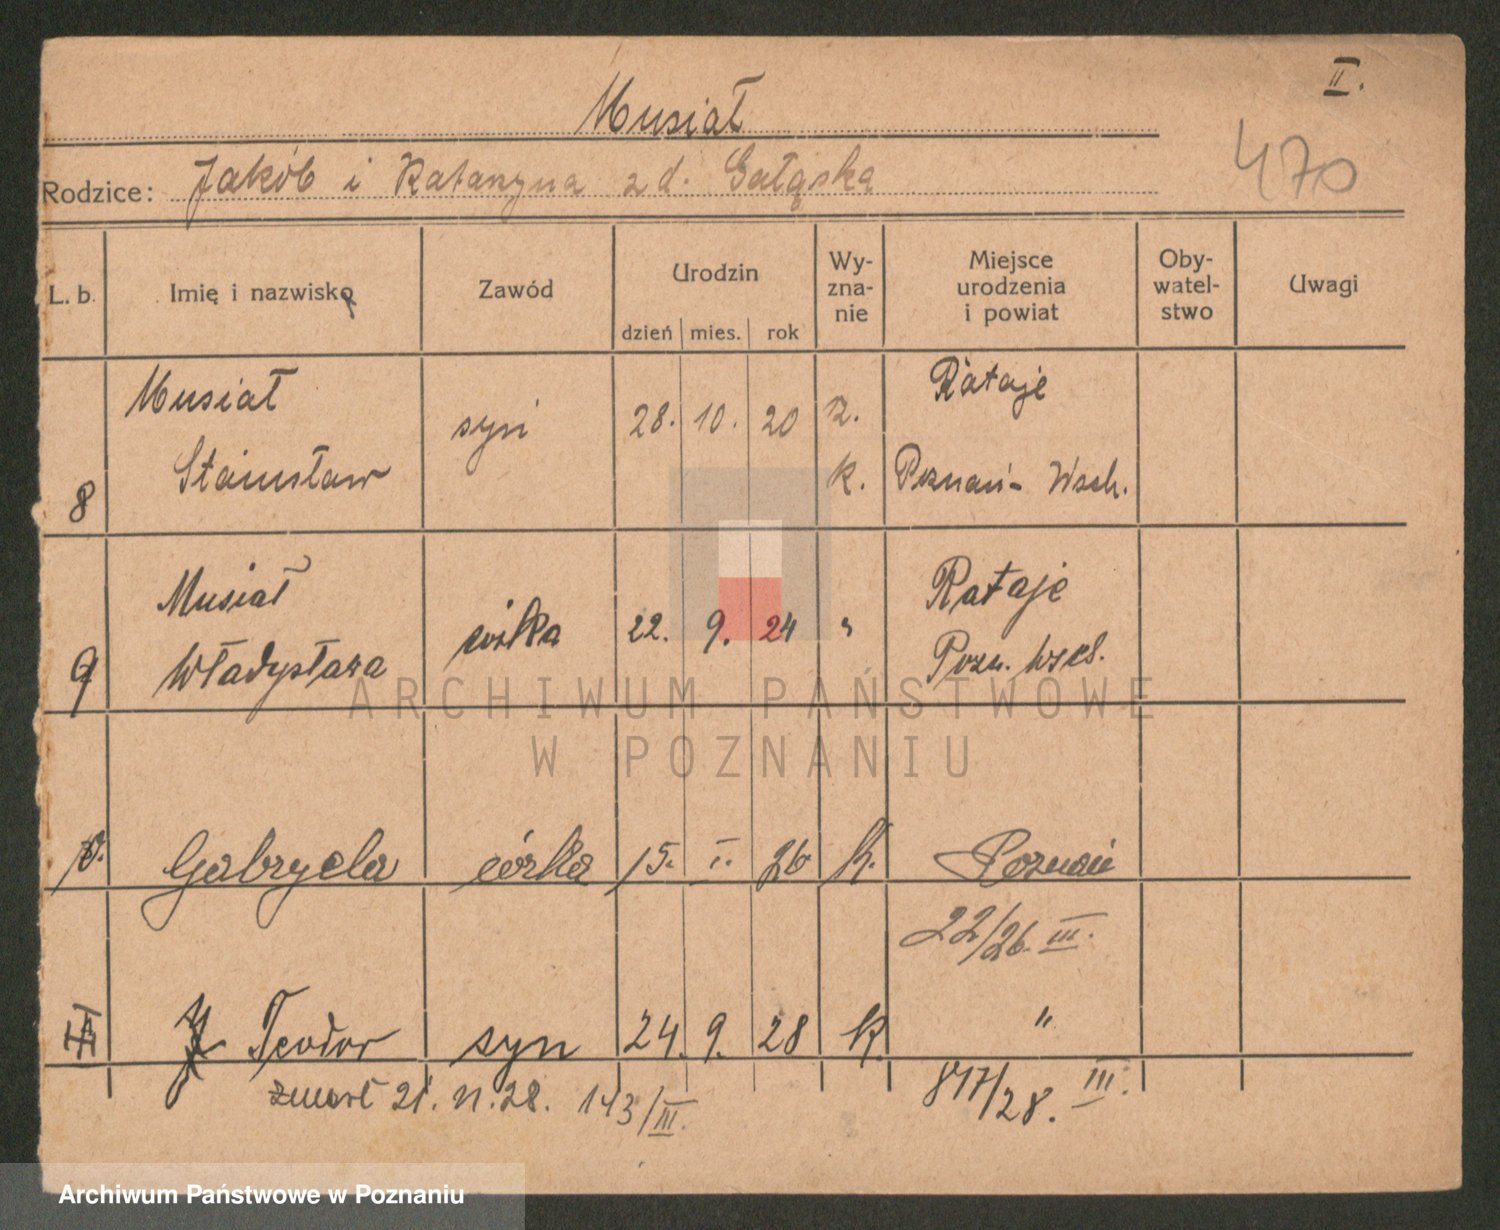 II.
Musiał
470
Rodzice: Jakób i Katarzyna zd. Gałąska
L. b. Imię i nazwisko Zawód Urodzin Wy-zna-nie Miejsce urodzenia i powiat Oby-watel-stwo Uwagi
dzień mies. rok
Musiał syn 28. 10. 20 r. Rataje
8 Stanisław k. Poznań-Wsch.
Musiał córka 22. 9. 24 " Rataje
9 Władysława Pozn. Wsch.
Gabryela córka 15. I. 26 k. Poznań
22/26. III.
Teodor syn 24. 9. 28 k. "
zmarł 21. 11. 28. 143/III. 847/28. III.
ARCHIWUM PAŃSTWOWE
W POZNANIU
Archiwum Państwowe w Poznaniu